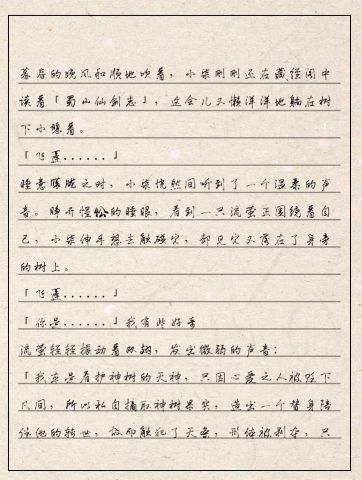 暮春的晚风和顺地吹着，小柒刚刚还在藏经阁中
读着「蜀山仙剑志」，这会儿又懒洋洋地躺在树
下小憩着。
「飞蓬......」
睡意朦胧之时，小柒恍然间听到了一个温柔的声
音。睁开惺忪的睡眼，看到一只流萤正围绕着自
己，小柒伸手想去触碰它，却见它又落在了身旁
的树上。
「飞蓬......」
「你是......」我有些好奇
流萤轻轻振动着双翅，发出微弱的声音：
「我本是看护神树的天神，只因心爱之人被贬下
凡间，所以私自摘取神树果实，造出一个替身陪
伴他的转世，故而触犯了天条，形体被剥夺，只